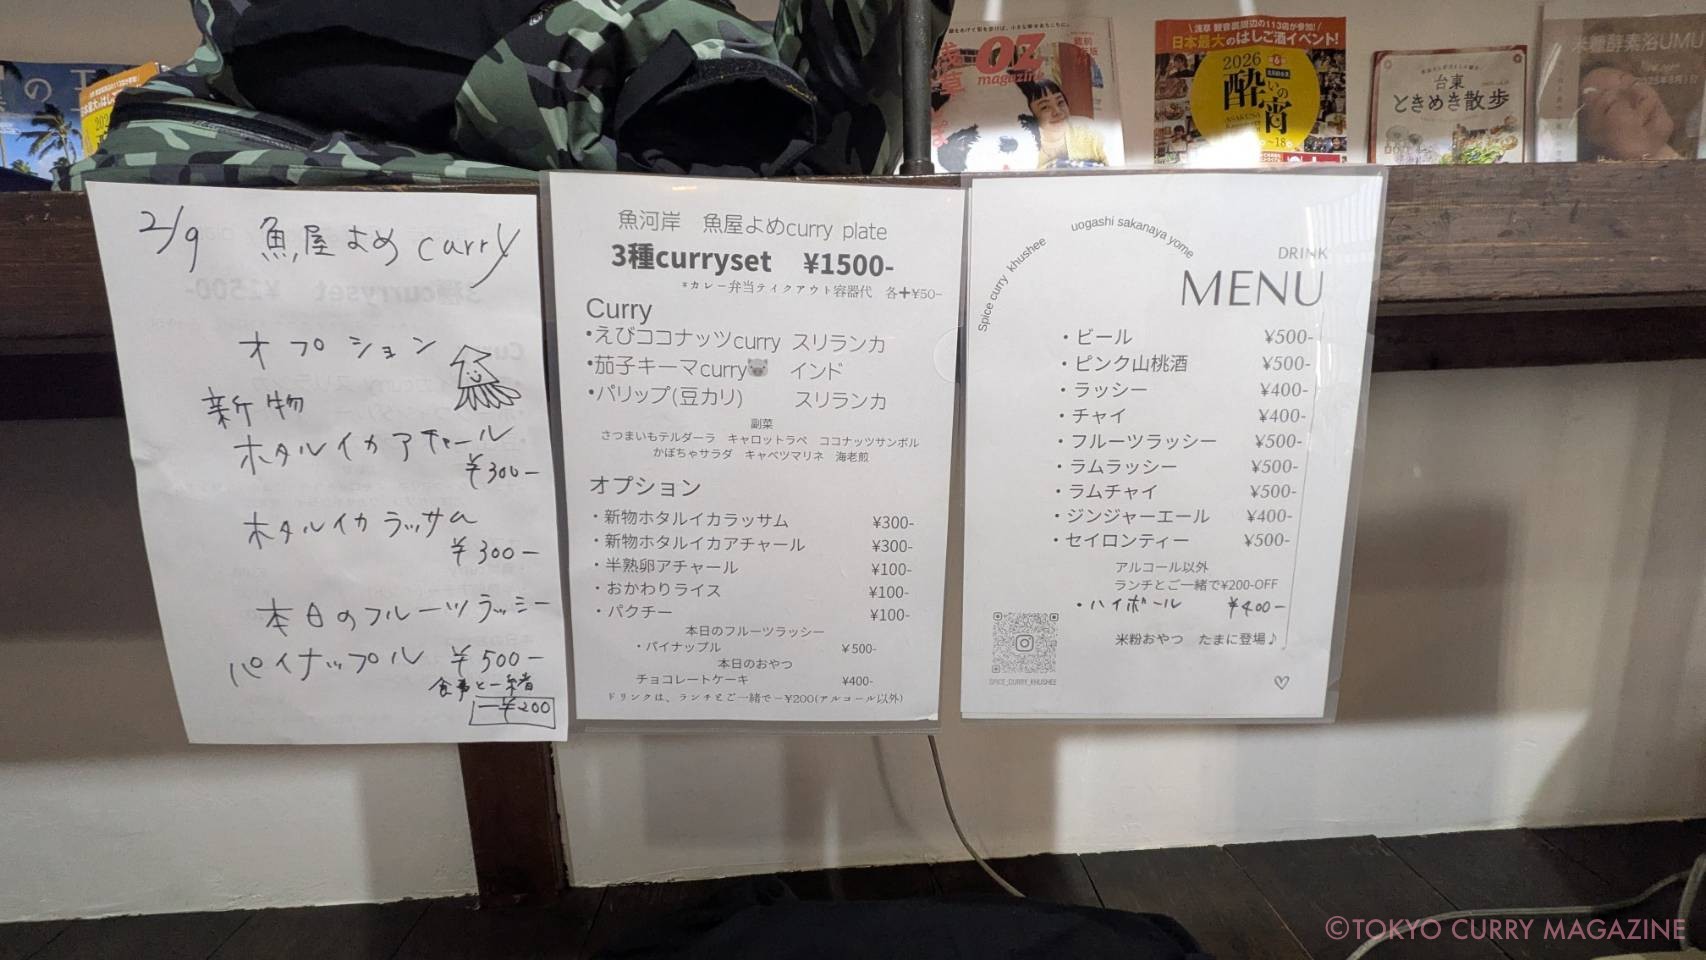 2/9 魚屋よめcurry
オプション
新物
ホタルイカアチャール
¥300-
ホタルイカラッサム
¥300-
本日のフルーツラッシー
パイナップル ¥500-
食事と一緒
-¥200
魚河岸 魚屋よめcurry plate
3種curryset ¥1500-
*カレー弁当テイクアウト容器代 各+¥50-
Curry
•えびココナッツcurry スリランカ
•茄子キーマcurry🐷 インド
•パリップ(豆カリ) スリランカ
副菜
さつまいもテルダーラ キャロットラペ ココナッツサンボル
かぼちゃサラダ キャベツマリネ 海老煎
オプション
・新物ホタルイカラッサム ¥300-
・新物ホタルイカアチャール ¥300-
・半熟卵アチャール ¥100-
・おかわりライス ¥100-
・パクチー ¥100-
本日のフルーツラッシー
・パイナップル ¥500-
本日のおやつ
チョコレートケーキ ¥400-
ドリンクは、ランチとご一緒で−¥200(アルコール以外)
Spice curry khushee uogashi sakanaya yome
DRINK
MENU
・ビール ¥500-
・ピンク山桃酒 ¥500-
・ラッシー ¥400-
・チャイ ¥400-
・フルーツラッシー ¥500-
・ラムラッシー ¥500-
・ラムチャイ ¥500-
・ジンジャーエール ¥400-
・セイロンティー ¥500-
アルコール以外
ランチとご一緒で¥200-OFF
・ハイボール ¥400-
米粉おやつ たまに登場♪
SPICE_CURRY_KHUSHEE
浅草
OZ
magazine
浅草 観音裏周辺の113店が参加!
日本最大のはしご酒イベント!
2026
酔いの宵
台東
ときめき散歩
米糠酵素浴UMU
©TOKYO CURRY MAGAZINE